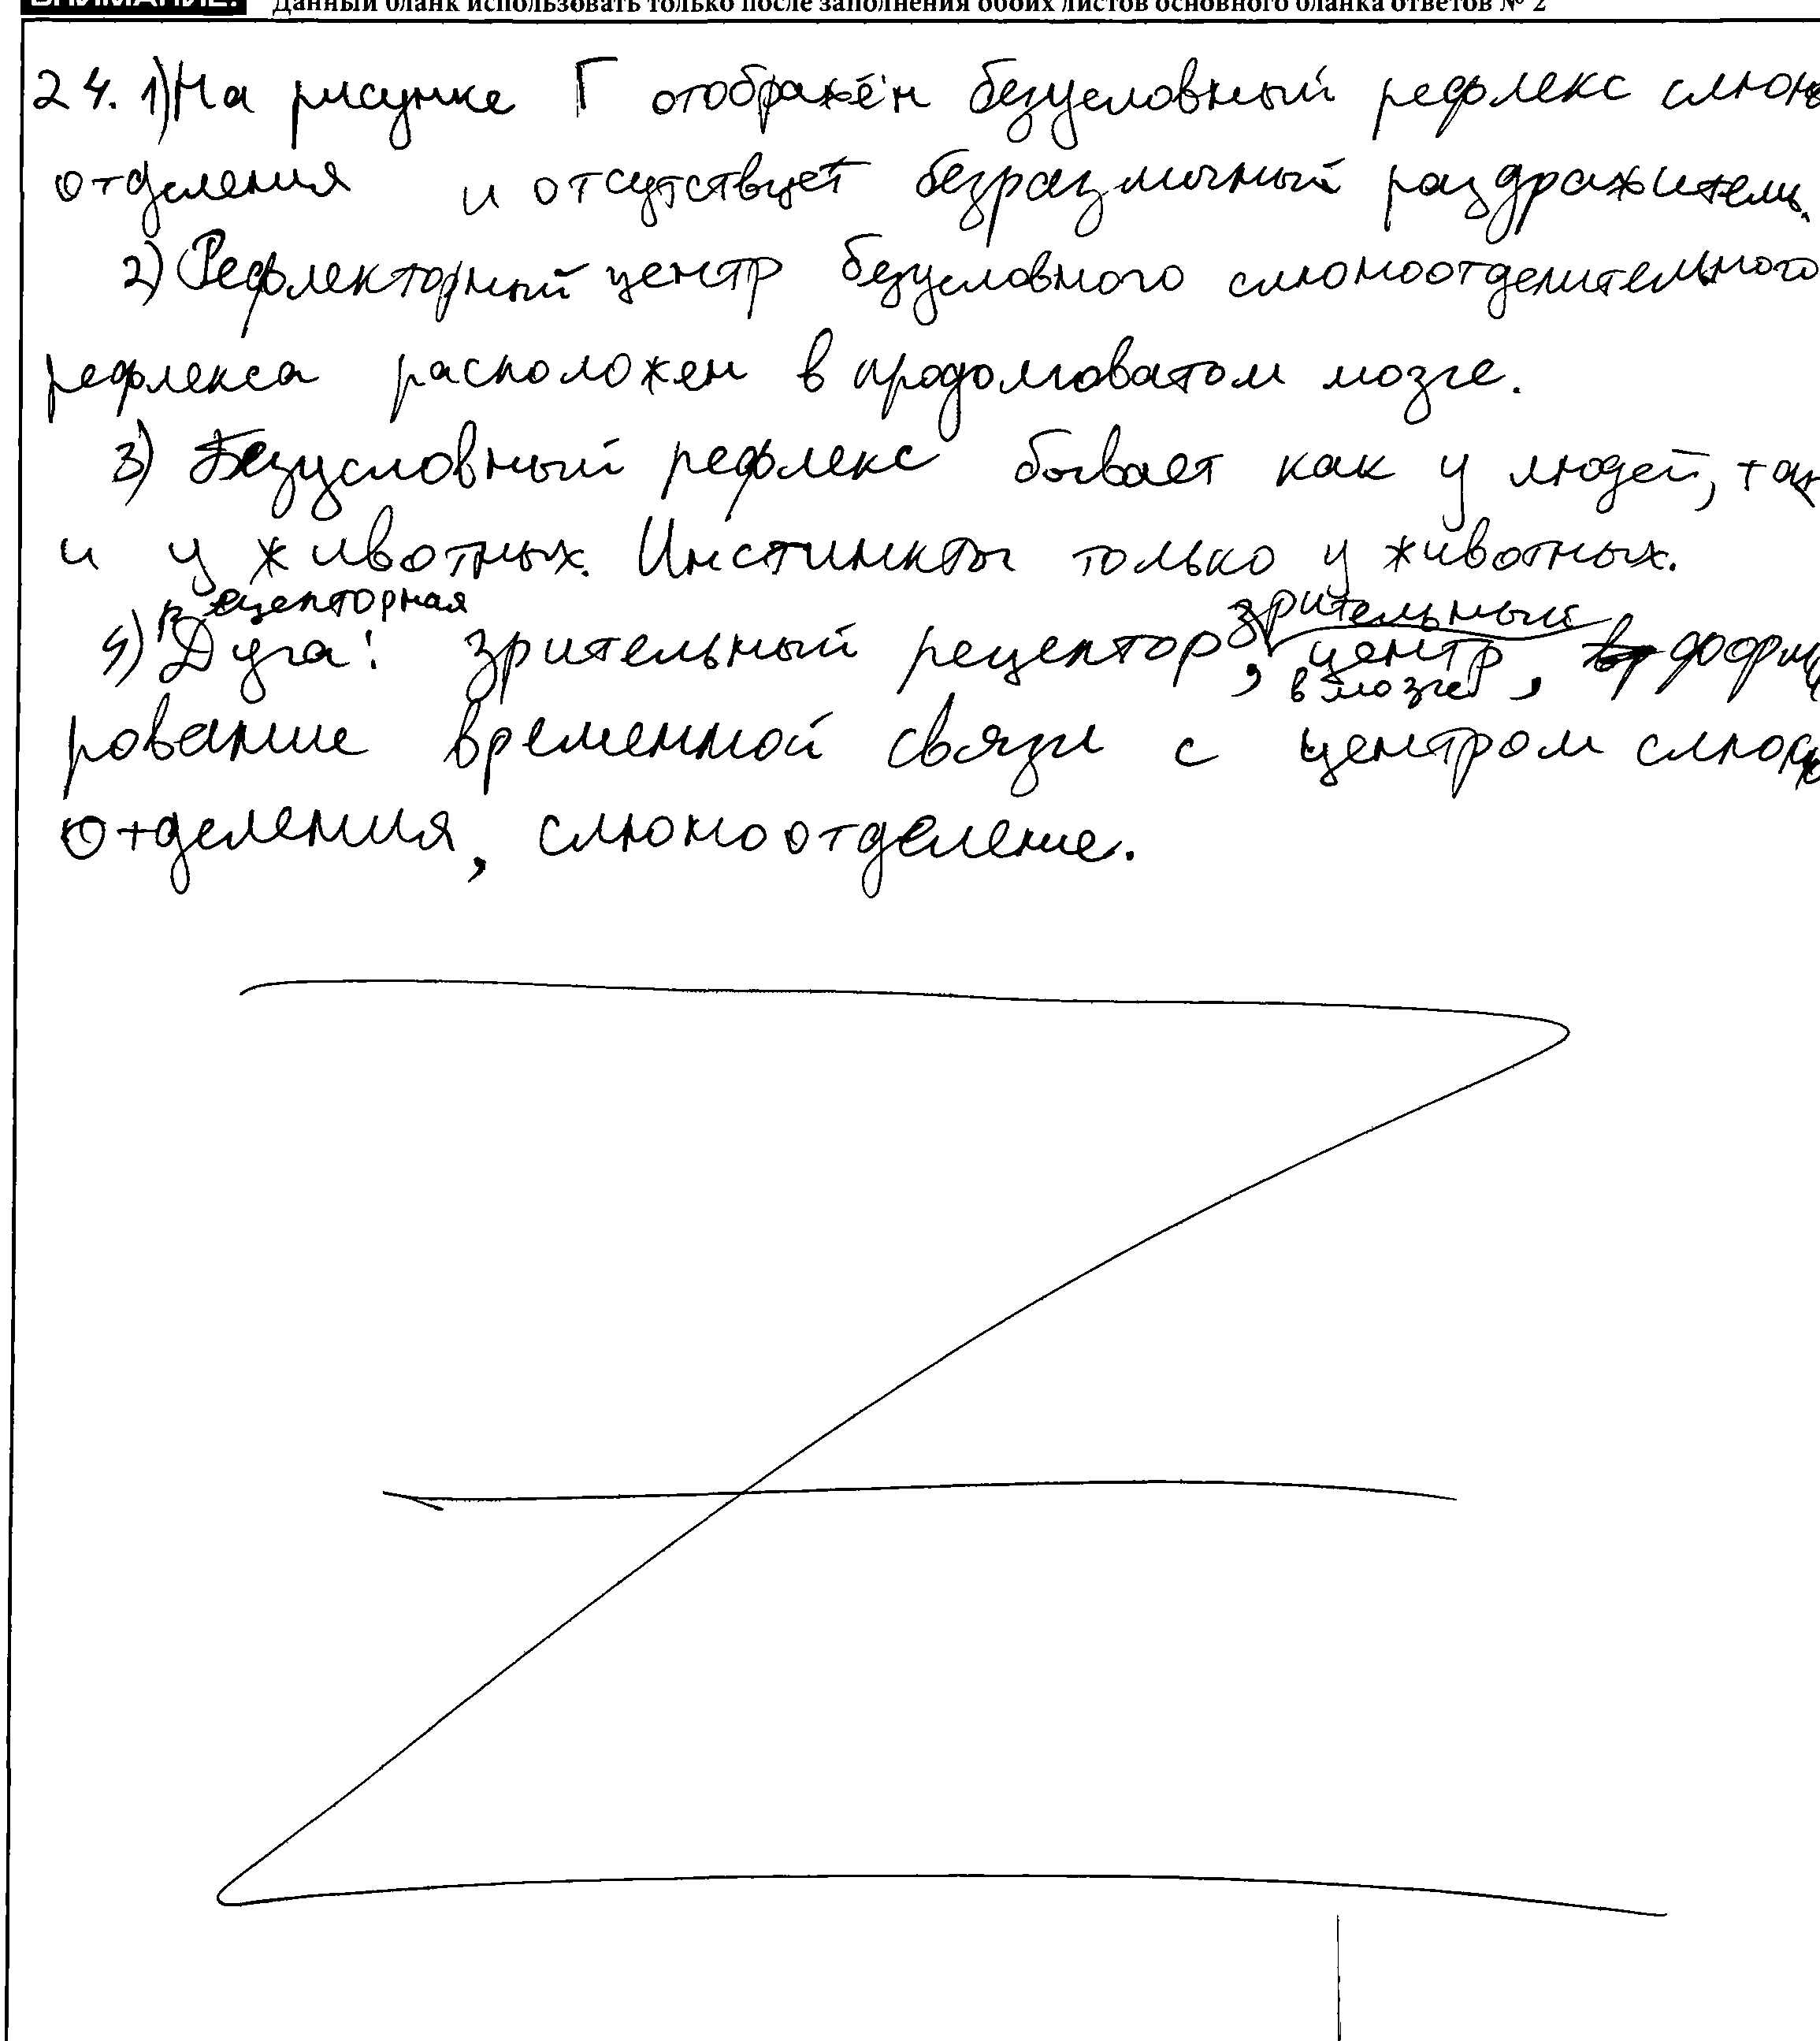 ВНИМАНИЕ! Данный бланк использовать только после заполнения обоих листов основного бланка ответов № 2
24. 1) На рисунке Г отображён безусловный рефлекс слюно
отделения и отсутствует безразличный раздражитель.
2) Рефлекторный центр безусловного слюноотделительного
рефлекса расположен в продолговатом мозге.
3) Безусловный рефлекс бывает как у людей, так
и у животных. Инстинкты только у животных.
рецепторная зрительный
4) Дуга: зрительный рецептор, центр
в мозге,
рование временной связи с центром слюно
отделения, слюноотделение.